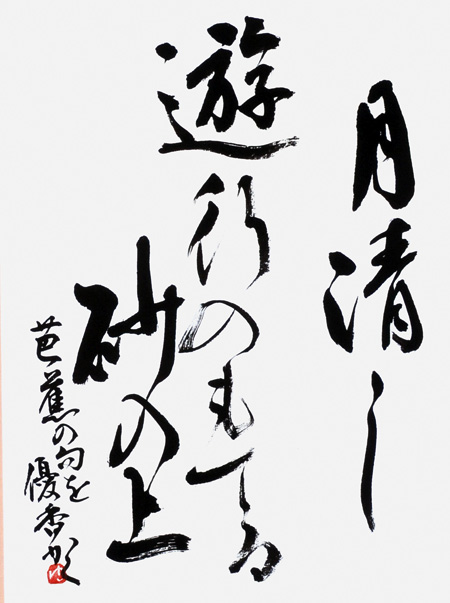 月清し
遊行のもてる
砂の上
芭蕉の句を
優香かく